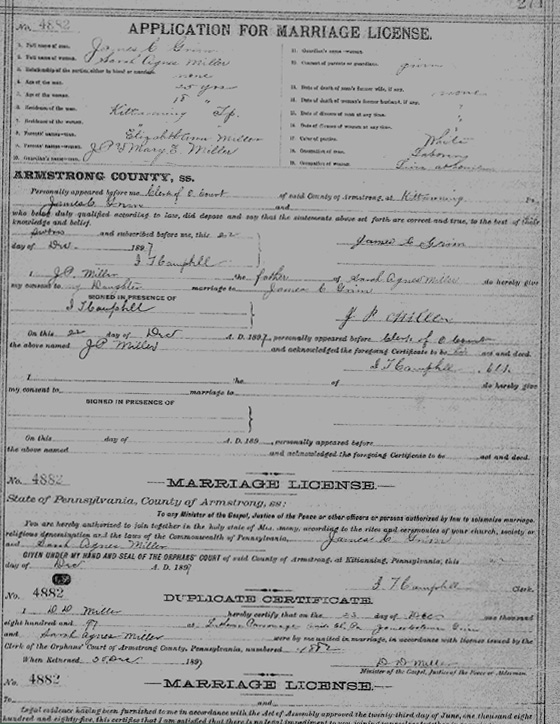 271
No. 4882
APPLICATION FOR MARRIAGE LICENSE.
1. Full name of man, James C Grim
2. Full name of woman, Sarah Agnes Miller
3. Relationship of the parties, either by blood or marriage, none
4. Age of the man, 25 yrs
5. Age of the woman, 18 "
6. Residence of the man, Kittanning Tp.
7. Residence of the woman, "
8. Parents' names—man, Elizabeth
9. Parents' names—woman, J P & Mary E Miller
10. Guardian's name—man,
11. Guardian's name—woman,
12. Consent of parents or guardians, given
13. Date of death of man's former wife, if any, none
14. Date of death of woman's former husband, if any, "
15. Date of divorce of man at any time, "
16. Date of divorce of woman at any time, "
17. Color of parties, White
18. Occupation of man, Laborer
19. Occupation of woman, Lives at home
ARMSTRONG COUNTY, ss.
Personally appeared before me Clerk of O. Court of said County of Armstrong, at Kittanning Pa.,
James C Grim and
who being duly qualified according to law, did depose and say that the statements above set forth are correct and true, to the best of their
knowledge and belief.
Sworn and subscribed before me, this 22
day of Dec 1897 James C Grim
I T Campbell
I J.P. Miller the father of Sarah Agnes Miller do hereby give
my consent to my Daughter marriage to James C Grim
SIGNED IN PRESENCE OF
I T Campbell J P Miller
On this 22 day of Dec A. D. 1897, personally appeared before Clerk of O Court
the above named J P Miller and acknowledged the foregoing Certificate to be his act and deed.
I T Campbell
I the of do hereby give
my consent to marriage to
SIGNED IN PRESENCE OF
On this day of A. D. 189 , personally appeared before
the above named and acknowledged the foregoing Certificate to be act and deed.
No. 4882
MARRIAGE LICENSE.
State of Pennsylvania, County of Armstrong, ss:
To any Minister of the Gospel, Justice of the Peace or other officers or persons authorized by law to solemnize marriage.
You are hereby authorized to join together in the holy state of Matrimony, according to the rites and ceremonies of your church, society or
religious denomination and the laws of the Commonwealth of Pennsylvania, James C Grim
and Sarah Agnes Miller
GIVEN UNDER MY HAND AND SEAL OF THE ORPHANS' COURT of said County of Armstrong, at Kittanning, Pennsylvania, this
day of Dec A. D. 1897
I T Campbell Clerk.
No. 4882
DUPLICATE CERTIFICATE.
I D D Miller hereby certify that on the 23 day of Dec one thousand
eight hundred and 97 at Parsonage James Grim
and Sarah Agnes Miller were by me united in marriage, in accordance with license issued by the
Clerk of the Orphans' Court of Armstrong County, Pennsylvania, numbered 4882
D D Miller
When Returned 30 Dec 1897
Minister of the Gospel, Justice of the Peace or Alderman
No. 4882
MARRIAGE LICENSE.
To and
Legal evidence having been furnished to me in accordance with the Act of Assembly approved the twenty-third day of June, one thousand eight
hundred and eighty-five, this certifies that I am satisfied that there is no legal impediment to